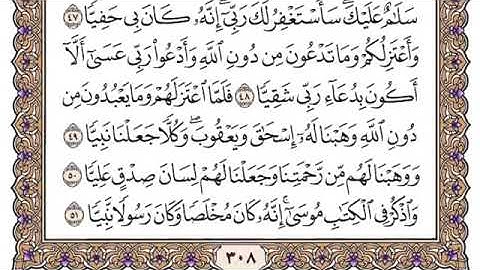 سَلَٰمٌ عَلَيْكَ ۖ سَأَسْتَغْفِرُ لَكَ رَبِّىٓ ۖ إِنَّهُۥ كَانَ بِى حَفِيًّا ٤٧
وَأَعْتَزِلُكُمْ وَمَا تَدْعُونَ مِن دُونِ ٱللَّهِ وَأَدْعُوا۟ رَبِّى عَسَىٰٓ أَلَّآ
أَكُونَ بِدُعَآءِ رَبِّى شَقِيًّا ٤٨ فَلَمَّا ٱعْتَزَلَهُمْ وَمَا يَعْبُدُونَ مِن
دُونِ ٱللَّهِ وَهَبْنَا لَهُۥٓ إِسْحَٰقَ وَيَعْقُوبَ ۖ وَكُلًّا جَعَلْنَا نَبِيًّا ٤٩
وَوَهَبْنَا لَهُم مِّن رَّحْمَتِنَا وَجَعَلْنَا لَهُمْ لِسَانَ صِدْقٍ عَلِيًّا ٥٠
وَٱذْكُرْ فِى ٱلْكِتَٰبِ مُوسَىٰٓ ۚ إِنَّهُۥ كَانَ مُخْلَصًا وَكَانَ رَسُولًا نَّبِيًّا ٥١
٣٠٨